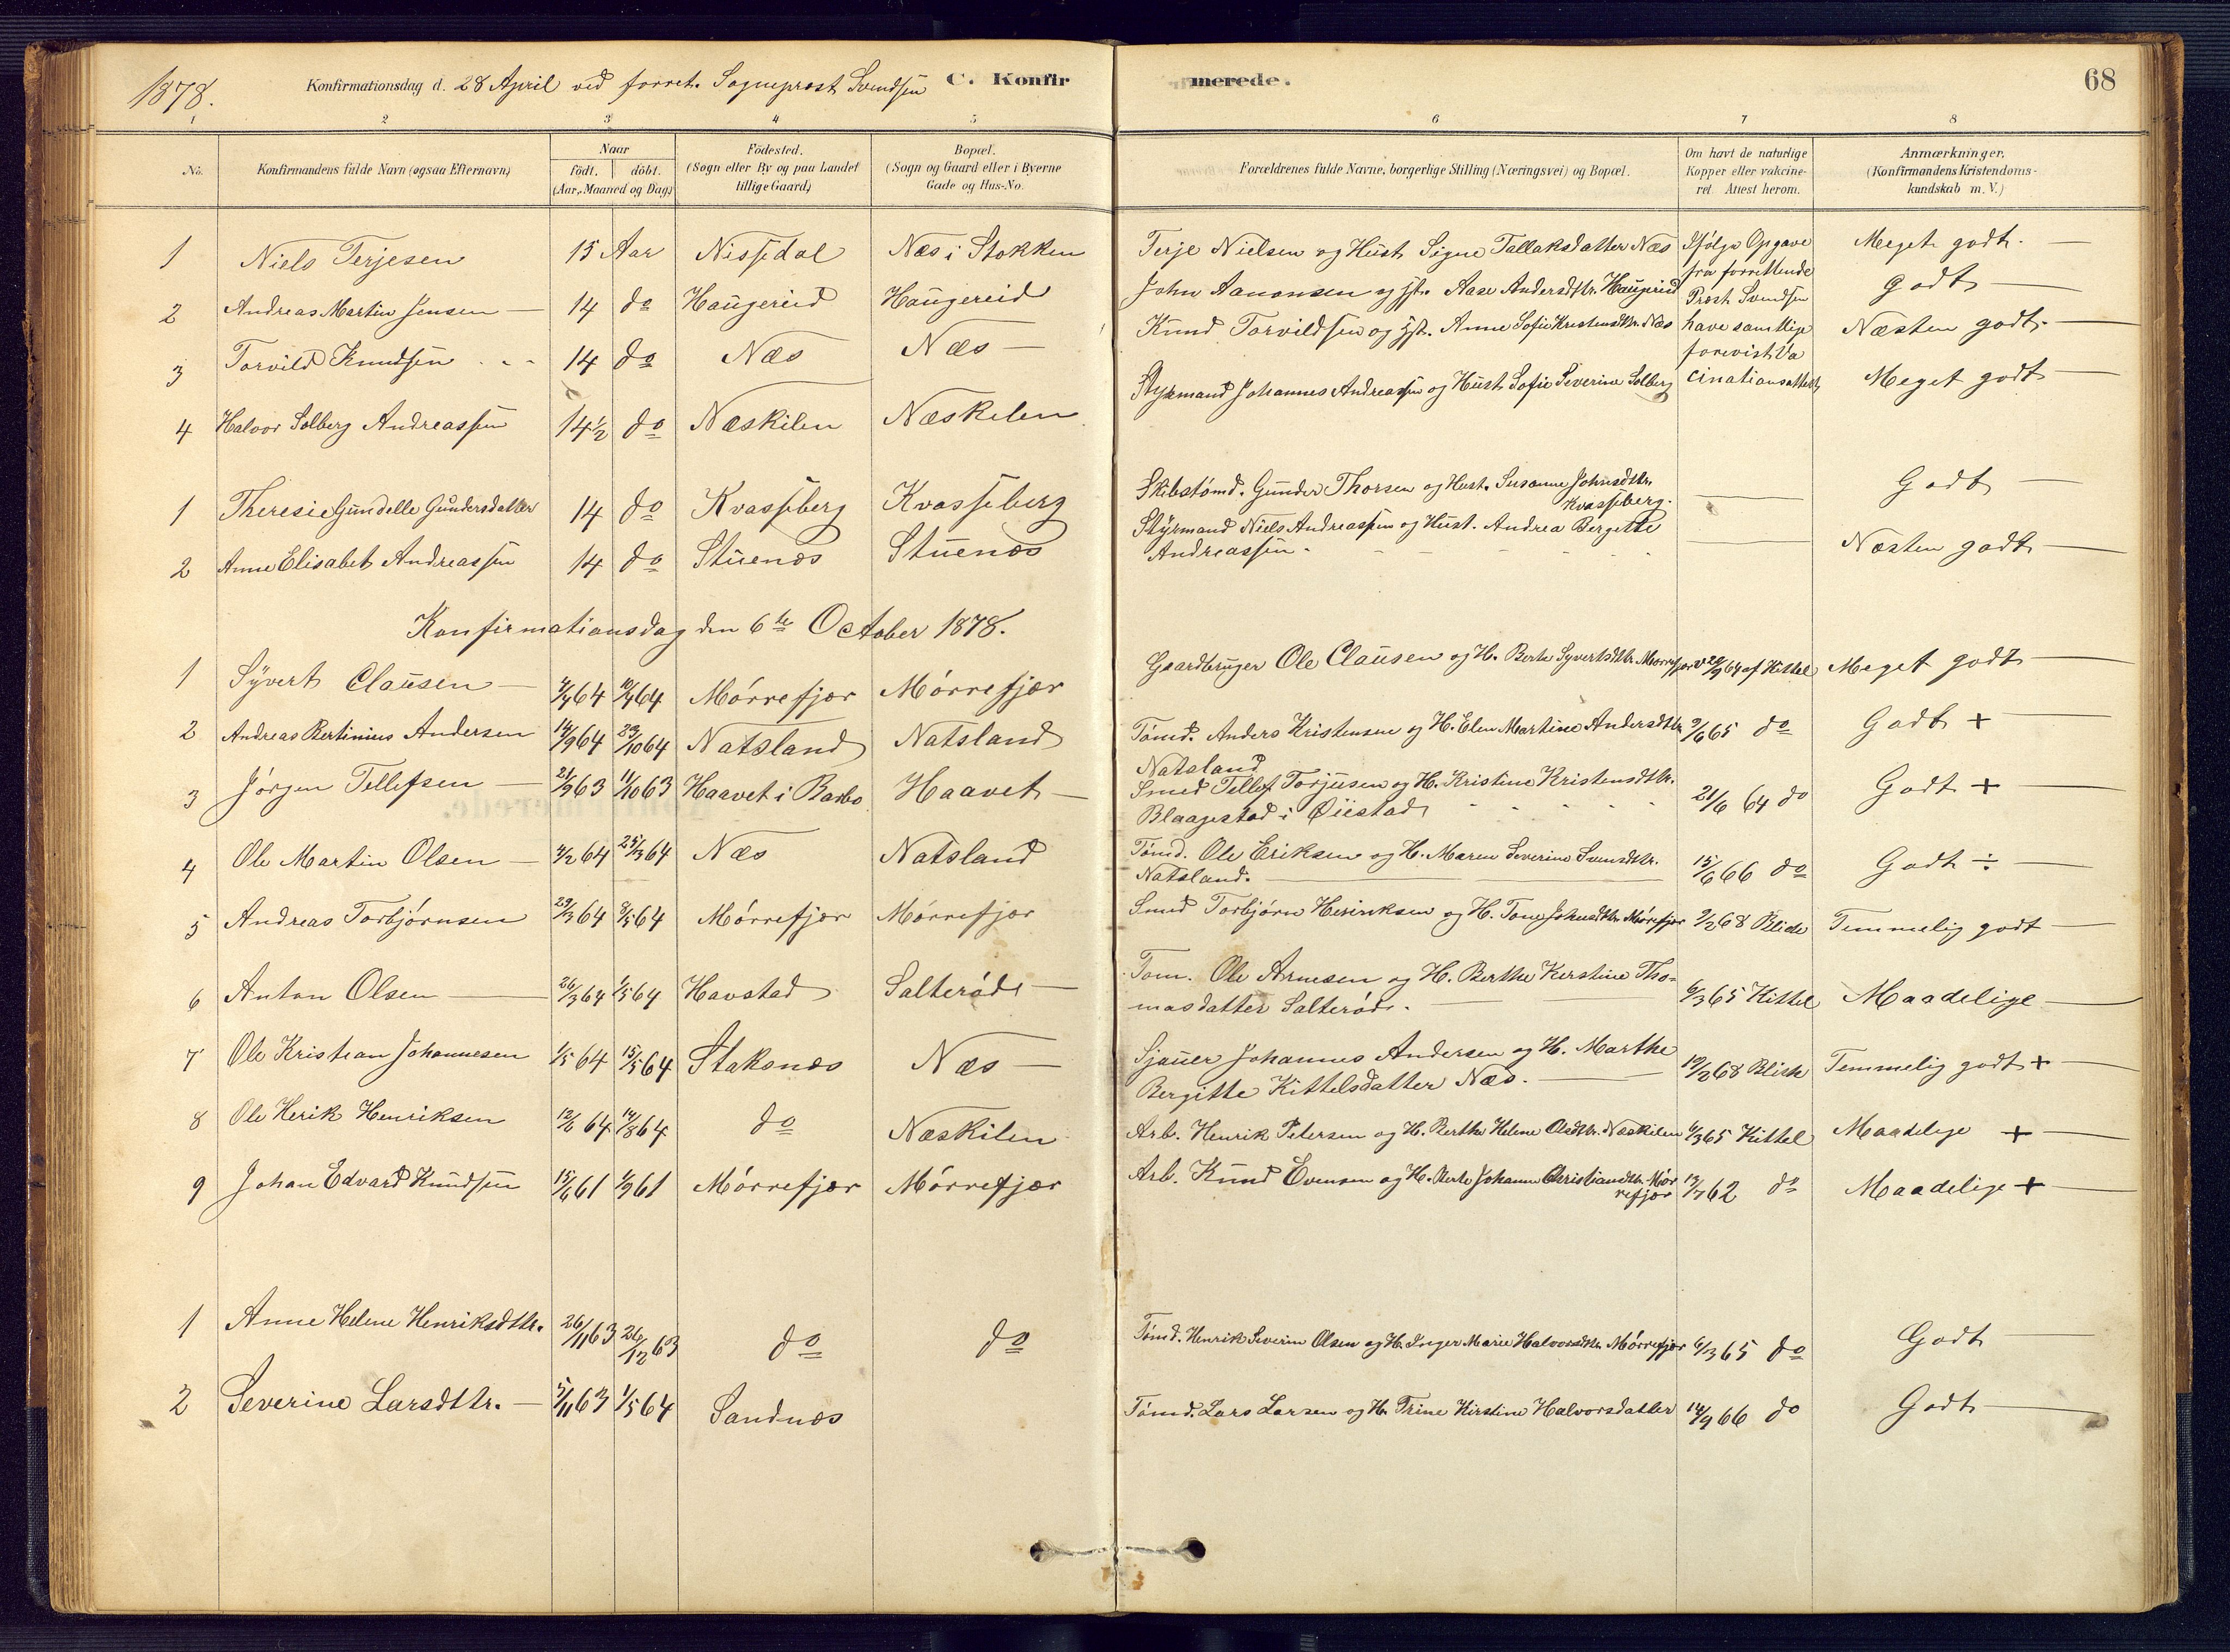 1878.
Konfirmationsdag d. 28 April ved forret. Sogneprest Svendsen
C. Konfirmerede.
68
1 2 3 4 5 6 7 8
No. Konfirmandens fulde Navn (ogsaa Efternavn) Naar födt. döbt. (Aar, Maaned og Dag.) Födested. (Sogn eller By og paa Landet tillige Gaard.) Bopæl. (Sogn og Gaard eller i Byerne Gade og Hus-No. Forældrenes fulde Navne, borgerlige Stilling (Næringsvei) og Bopæl. Om havt de naturlige Kopper eller vakcineret. Attest herom. Anmærkninger. (Konfirmandens Kristendomskundskab m. V.)
1 Niels Terjesen 15 Aar Nissedal Næs i Stokken Terje Nielsen og Hust Signe Tallaksdatter Næs Ifølge Opgave Meget godt.
fra forrettende
2 Andreas Martin Jensen 14 do Haugereid Haugereid John Aanonsen og Hst. Aase Andersdttr. Haugereid Prost Svendsen godt
3 Torvild Knudsen 14 do Næs Næs Knud Torvildsen og Hst. Anne Sofie Kristensdttr. Næs have samtlige Næsten godt
forevist Va
4 Halvor Solberg Andreassen 14½ do Næskilen Næskilen Styrmand Johannes Andreassen og Hust Sofie Severine Solberg cinationsattest Meget godt
1 Theresie Gundelle Gundersdatter 14 do Kvasseberg Kvasseberg Skibstømd. Gunder Thorsen og Hust. Susanne Johnsdttr. Godt
Kvasseberg.
2 Anne Elisabet Andreassen 14 do Stuenæs Stuenæs Styrmand Niels Andreassen og Hust. Andrea Bergette Næsten godt
Andreassen.
Konfirmationsdag den 6te October 1878.
1 Syvert Clausen 4/4 64 10/4 64 Mørrefjær Mørrefjær Gaardbruger Ole Clausen og H. Berte Syvertsdttr. Mørrefjær 64 af Kittel Meget godt
2 Andreas Bertinius Andersen 14/9 64 23/10 64 Natsland Natsland Tømd. Anders Kristensen og H. Elen Martine Andersdttr. 9/6 65 do Godt +
Natsland
3 Jørgen Tellefsen 21/9 63 11/10 63 Haavet i Barbo Haavet Smed Tellef Torjusen og H. Kristine Kristensdttr. 21/6 64 do Godt +
Blaagestad i Øiestad
4 Ole Martin Olsen 4/2 64 25/3 64 Næs Natsland Tømd. Ole Eriksen og H. Maren Severine Svensdttr. 15/6 66 do Godt ÷
Natsland.
5 Andreas Torbjørnsen 29/3 64 8/5 64 Mørrefjær Mørrefjær Smed Torbjørn Henriksen og H. Tone Johnsdttr. Mørefjær 9/2 68 Temmelig godt
6 Anton Olsen 26/3 64 1/5 64 Havstad Salterød Tøm. Ole Arnesen og H. Berthe Kerstine Tho-
masdatter Salterød. 6/3 65 Kittel Maadelige
7 Ole Kristian Johannesen 1/5 64 15/5 64 Staksnæs Næs Sjauer Johannes Andersen og H. Marthe
Bergitte Kittelsdatter Næs. 19/2 68 Temmelig godt +
8 Ole Herik Henriksen 12/6 64 14/8 64 do Næskilen Arb. Henrik Petersen og H. Berthe Helene Olsdttr. Næskilen 6/3 65 Kittel Maadelige +
9 Johan Edvard Knudsen 15/6 61 1/9 61 Mørrefjær Mørrefjær Arb. Knud Evensen og H. Berte Johanne Christiansdttr. Mør
refjær 17/7 62 do Maadelige +
1 Anne Helene Henriksdttr. 26/11 63 26/12 63 do do Tømd. Henrik Severin Olsen og H. Inger Marie Halvorsdttr. Mørrefjær 6/3 65 do Godt
2 Severine Larsdttr. 5/11 63 1/5 64 Sandnæs Tømd. Lars Larsen og H. Trine Kirstine Halvorsdatter 14/9 66 do Godt